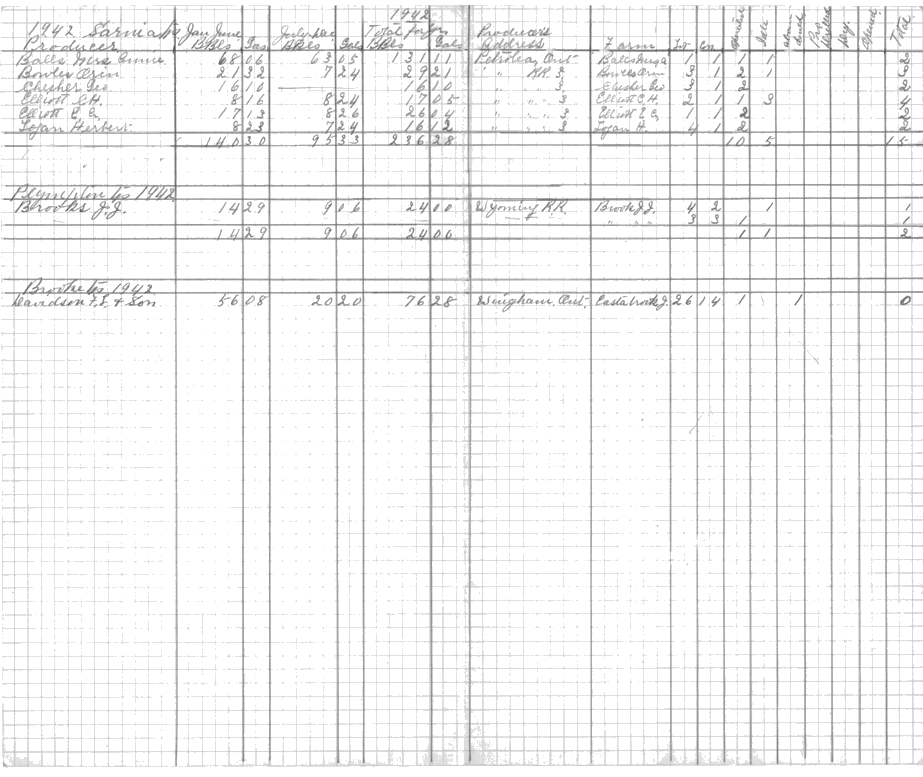 1942
1942 Sarnia Tp Jan June July Dec Total for yr Producers
Producer BBls Gals BBls Gals BBls Gals Address Farm Lot Con Idle Drilled Dry Total
Balls Mrs Annie 68 06 63 05 131 11 Petrolea, Ont Balls 1 1 1 1 2
Bowles Orin 21 32 7 24 29 21 " " RR 3 Bowles Orin 3 1 2 1 3
Geo 16 10 16 10 " " 3 Geo 3 1 2 2
Elliott C.H. 8 16 8 24 17 05 " " " 3 Elliott C.H. 2 1 1 3 4
Elliott E E 17 13 8 26 26 04 " " " 3 Elliott E E 1 1 2 2
Logan Herbert 8 23 7 24 16 12 " " " 3 Logan H. 4 1 2 2
140 30 95 33 236 28 10 5 15
Plympton Tp 1942
Brooks J.J. 14 29 9 06 24 00 Wyoming R.R. Brook J.J. 4 2 1 1
" " " 3 3 1 1
14 29 9 06 24 00 1 1 2
Brooke Tp 1942
Davidson F.E. & Son 56 08 20 20 76 28 Wingham, Ont. J. 26 14 1 1 0